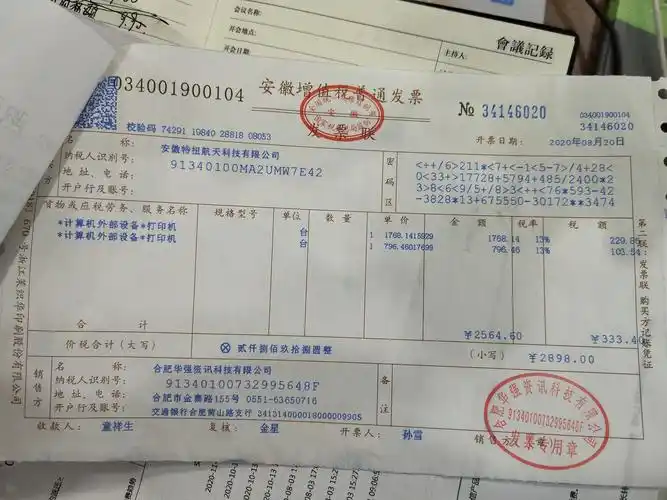 会议名称:
开会地点:
开会日期:
主持人:
會議記録
034001900104
安徽增值税普通发票
发票联
№ 34146020
034001900104
34146020
校验码 74291 19840 28818 08053
开票日期: 2020年08月20日
名 称: 安徽特纽航天科技有限公司
纳税人识别号: 91340100MA2UMW7E42
地址、电话:
开户行及账号:
密码区
<++/6>211*<7+<-1<5-7>/4+28<
0<33+>17728+5794+485/2400*2
3>8<6<9/5+/8>3<++<76*593-42
-3828*13+675550-30172**3474
货物或应税劳务、服务名称 规格型号 单位 数量 单价 金额 税率 税额
*计算机外部设备*打印机 台 1 1768.1415929 1768.14 13% 229.86
*计算机外部设备*打印机 台 1 796.46017699 796.46 13% 103.54
合 计 ¥2564.60 ¥333.40
价税合计(大写) ⊗贰仟捌佰玖拾捌圆整 (小写) ¥2898.00
销售方
名 称: 合肥华强资讯科技有限公司
纳税人识别号: 91340100732995648F
地址、电话: 合肥市金寨路155号 0551-63650716
开户行及账号: 交通银行合肥黄山路支行 341314000018000009905
备注
收款人: 童祥生 复核: 金星 开票人: 孙雪 销售方
合肥华强资讯科技有限公司
91340100732995648F
发票专用章
第二联:发票联 购买方记账凭证